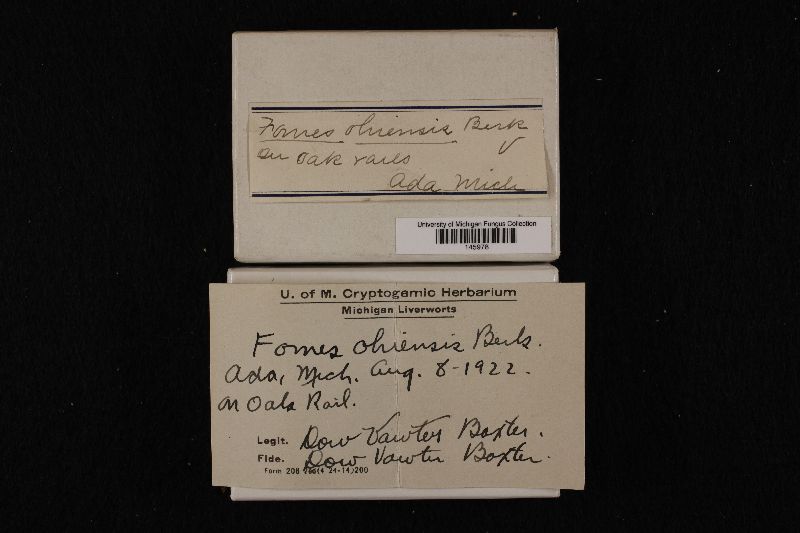 Fomes ohiensis Berk
on oak rails V
Ada Mich
University of Michigan Fungus Collection
145978
U. of M. Cryptogamic Herbarium
Michigan Liverworts
Fomes ohiensis Berk.
Ada, Mich. Aug. 8-1922.
on Oak Rail.
Legit. Dow Vawter Baxter.
Fide. Dow Vawter Baxter.
Form 208 (4 24-14)200